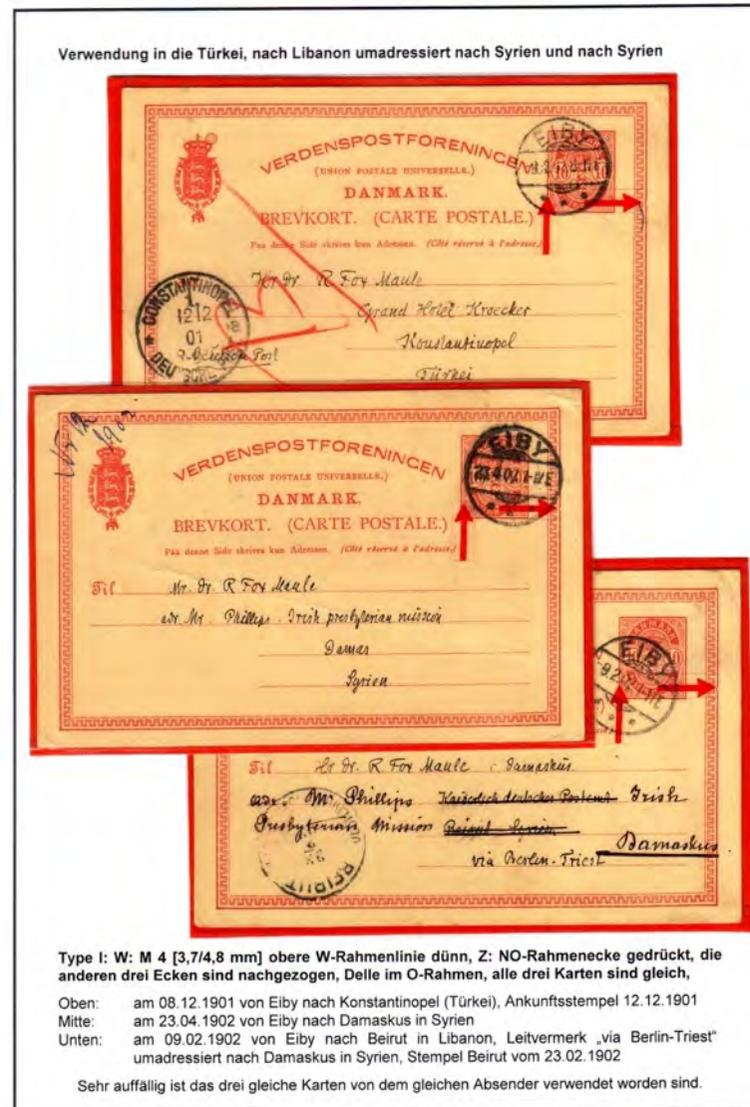 Verwendung in die Türkei, nach Libanon umadressiert nach Syrien und nach Syrien
VERDENSPOSTFORENINGEN
(UNION POSTALE UNIVERSELLE.)
DANMARK.
BREVKORT. (CARTE POSTALE.)
Paa denne Side skrives kun Adressen. (Côté réservé à l'adresse.)
EIBY
Hr Dr R Fox Maule
Grand Hotel Kroecker
Konstantinopel
Türkei
CONSTANTINOPEL
1
12 12
01
Post
VERDENSPOSTFORENINGEN
(UNION POSTALE UNIVERSELLE.)
DANMARK.
BREVKORT. (CARTE POSTALE.)
Paa denne Side skrives kun Adressen. (Côté réservé à l'adresse.)
EIBY
23.4.02
1902
Til Mr. Dr. R Fox Maule
adr Mr. Phillips. Irish presbyterian mission
Damas
Syrien
DANMARK
EIBY
9.2.02
Til Hr Dr. R. Fox Maule Damaskus
adr. Mr Phillips Kaiserlich deutsches Postamt Irish
Presbyterian Mission Beirut Syrien
Damaskus
via Berlin-Triest
BEIRUT
Type I: W: M 4 [3,7/4,8 mm] obere W-Rahmenlinie dünn, Z: NO-Rahmenecke gedrückt, die
anderen drei Ecken sind nachgezogen, Delle im O-Rahmen, alle drei Karten sind gleich,
Oben: am 08.12.1901 von Eiby nach Konstantinopel (Türkei), Ankunftsstempel 12.12.1901
Mitte: am 23.04.1902 von Eiby nach Damaskus in Syrien
Unten: am 09.02.1902 von Eiby nach Beirut in Libanon, Leitvermerk „via Berlin-Triest"
umadressiert nach Damaskus in Syrien, Stempel Beirut vom 23.02.1902
Sehr auffällig ist das drei gleiche Karten von dem gleichen Absender verwendet worden sind.